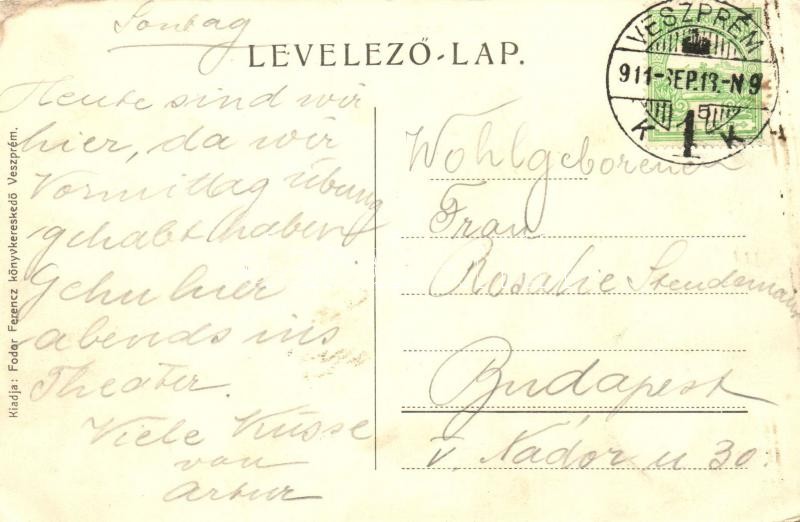 Sontag
LEVELEZŐ-LAP.
VESZPRÉM
911-SEP.13.-N9
5
K K
1
Heute sind wir
hier, da wir
Vormittag Übung
gehabt haben
Gehn hier
abends ins
Theater.
Viele Küsse
von
Artur
Wohlgeborenen
Frau
Rosalie
Budapest
V. Nádor u 30.
Kiadja: Fodor Ferencz könyvkereskedő Veszprém.